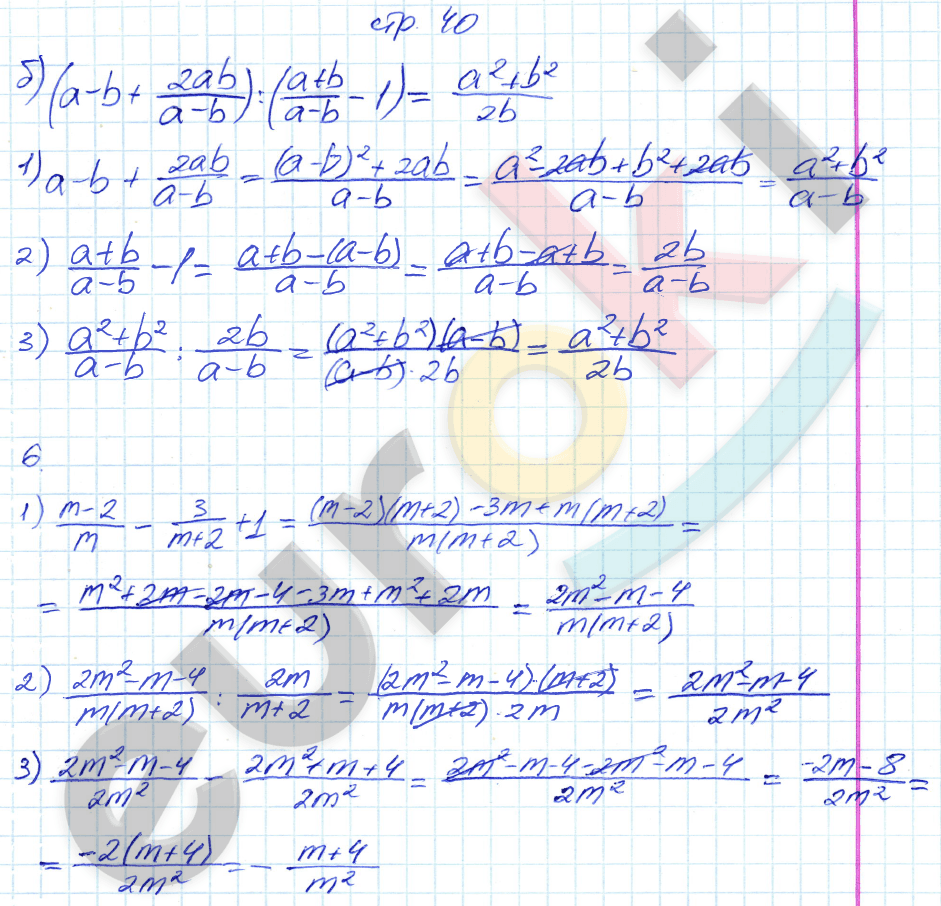 стр. 40
б) (a-b+\frac{2ab}{a-b}):(\frac{a+b}{a-b}-1)=\frac{a^2+b^2}{2b}
1) a-b+\frac{2ab}{a-b}=\frac{(a-b)^2+2ab}{a-b}=\frac{a^2-2ab+b^2+2ab}{a-b}=\frac{a^2+b^2}{a-b}
2) \frac{a+b}{a-b}-1=\frac{a+b-(a-b)}{a-b}=\frac{a+b-a+b}{a-b}=\frac{2b}{a-b}
3) \frac{a^2+b^2}{a-b}:\frac{2b}{a-b}=\frac{(a^2+b^2)(a-b)}{(a-b)·2b}=\frac{a^2+b^2}{2b}
6.
1) \frac{m-2}{m}-\frac{3}{m+2}+1=\frac{(m-2)(m+2)-3m+m(m+2)}{m(m+2)}=
=\frac{m^2+2m-2m-4-3m+m^2+2m}{m(m+2)}=\frac{2m^2-m-4}{m(m+2)}
2) \frac{2m^2-m-4}{m(m+2)}:\frac{2m}{m+2}=\frac{(2m^2-m-4)·(m+2)}{m(m+2)·2m}=\frac{2m^2-m-4}{2m^2}
3) \frac{2m^2-m-4}{2m^2}-\frac{2m^2+m+4}{2m^2}=\frac{2m^2-m-4-2m^2-m-4}{2m^2}=\frac{-2m-8}{2m^2}=
=\frac{-2(m+4)}{2m^2}=-\frac{m+4}{m^2}
euroki